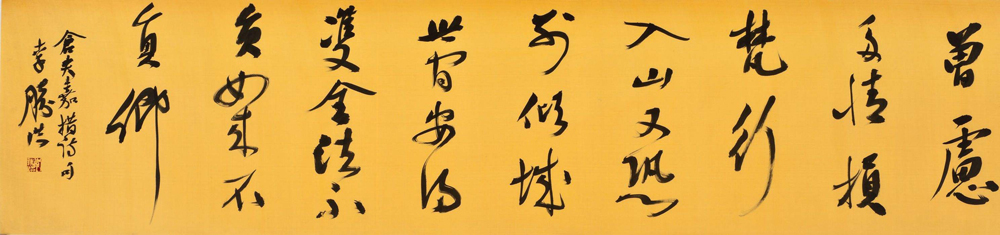 曾慮
多情損
梵行
入山又恐
别傾城
世間安得
雙全法不
負如来不
負卿
倉央嘉措詩句
李